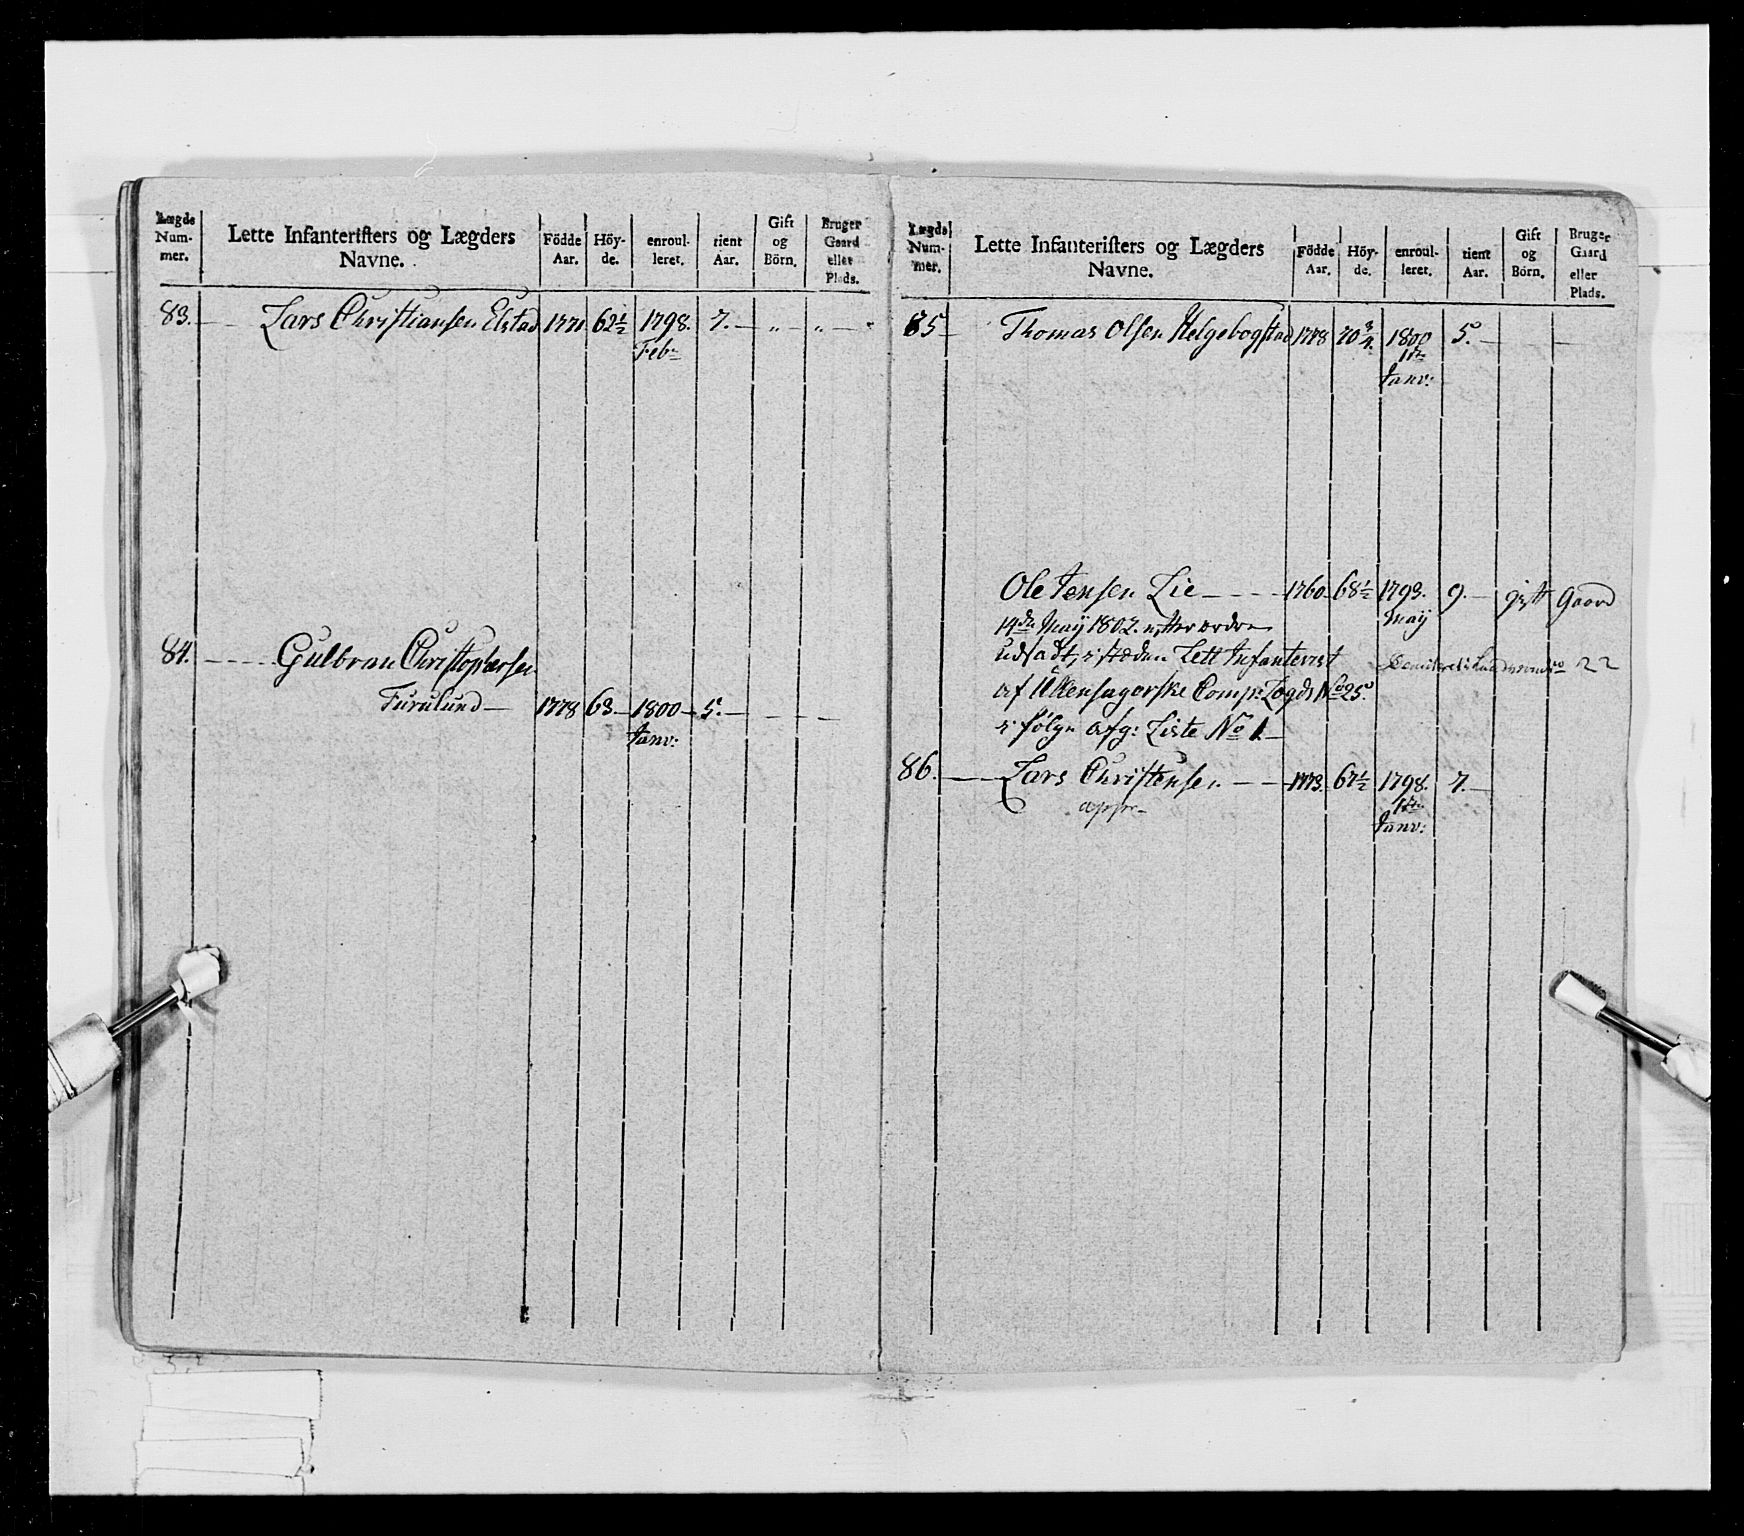 Lægds Num-mer. Lette Infanteristers og Lægders Navne. Födde Aar. Höy-de. enroul-leret. tient Aar. Gift og Börn. Bruger Gaard eller Plads.
83. Lars Christiansen Elstad 1771 62½ 1798. 7. — „ — „ —
Febr
84. Gulbran Christophersen
Furulund — 1778 63. — 1800 — 5. —
Janv:
Lægds Num-mer. Lette Infanteristers og Lægders Navne. Födde Aar. Höy-de. enroul-leret. tient Aar. Gift og Börn. Bruger Gaard eller Plads.
85 Thomas Olsen Helgebogstad 1778 70¾ 1800 5. —
1ste
Janv:
Ole Jensen Lie 1760 68½ 1793. 9. — gift Gaard
14de Maij 1802. efter ordre Maij
udsadt, i stæden Lett Infanterist 22
af Ullensagerske Comp: Legd No 25
i følge afg: Liste No 1.
86. Lars Christensen 1773. 67½ 1798. 7. —
appr 1ste
Janv: